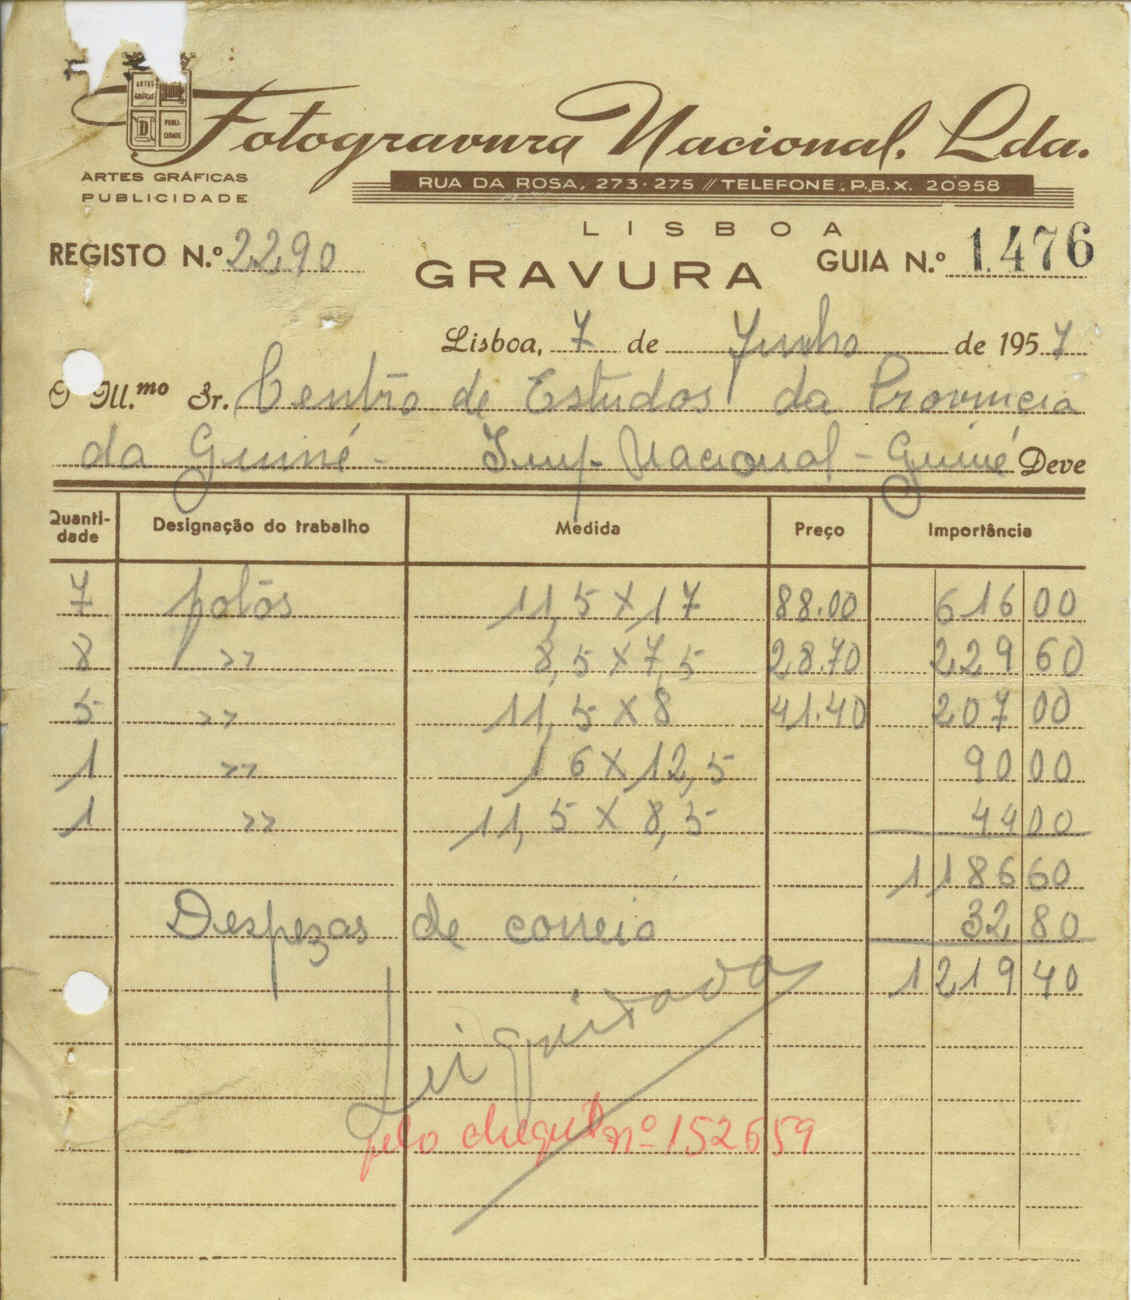 ARTES GRÁFICAS PUBLICIDADE
Fotogravura Nacional, Lda.
ARTES GRÁFICAS
PUBLICIDADE
RUA DA ROSA, 273-275 // TELEFONE, P.B.X. 20958
LISBOA
REGISTO N.º 2290
GRAVURA
GUIA N.º 1.476
Lisboa, 7 de Junho de 1957
O Ill.mo Sr. Centro de Estudos da Provincia
da Guiné - Imp. Nacional - Guiné Deve
Quantidade Designação do trabalho Medida Preço Importância
7 potos 11,5 x 17 88.00 616 00
8 >> 8,5 x 7,5 28.70 229 60
5 >> 11,5 x 8 41.40 207 00
1 >> 16 x 12,5 90 00
1 >> 11,5 x 8,5 44 00
1186 60
Despezas de correio 32 80
1219 40
Liquidada
pelo cheque nº 152659